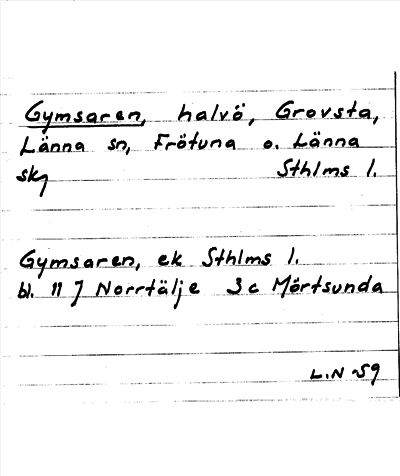 Gymsaren, halvö, Grovsta,
Länna sn, Frötuna o. Länna
skg Sthlms l.
Gymsaren, ek Sthlms l.
bl. 11 J Norrtälje 3c Mörtsunda
L.N -59